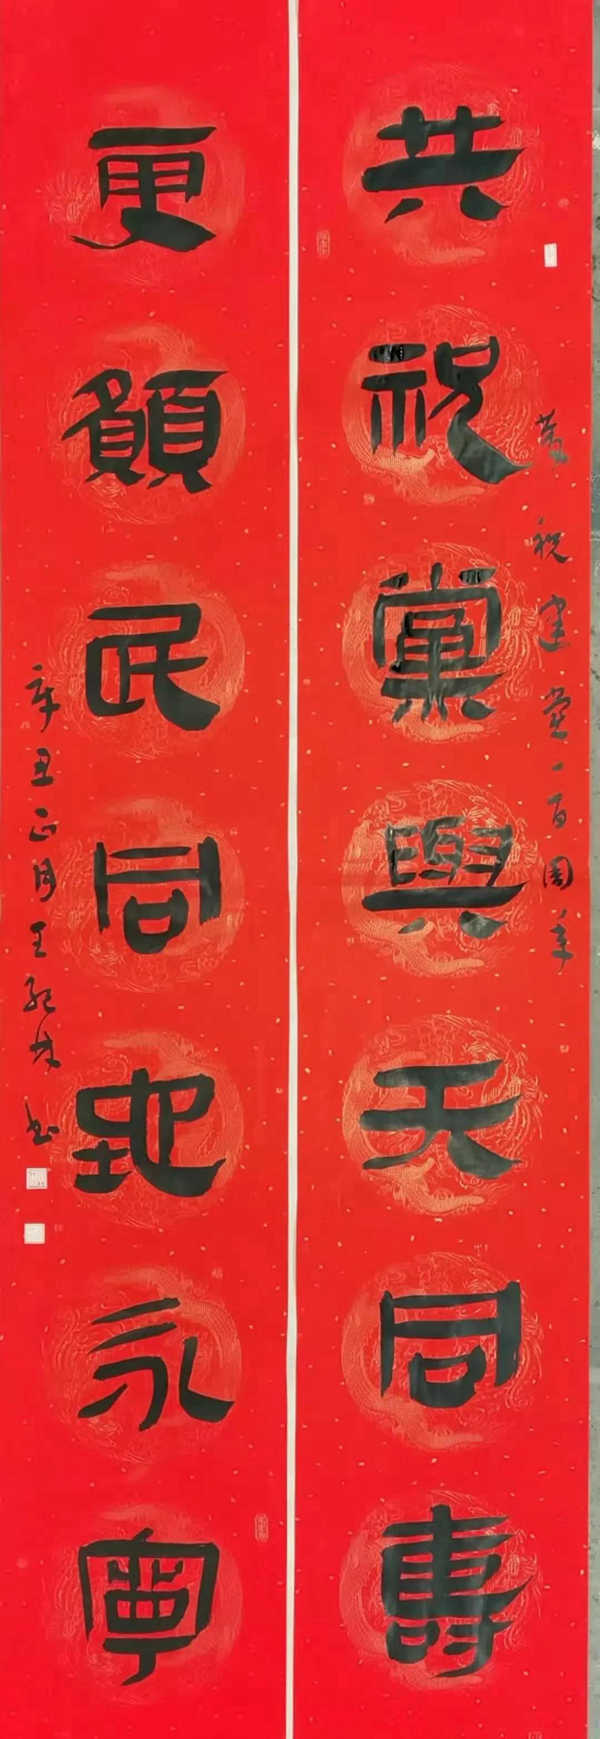 慶祝建党一百周年
共祝黨與天同壽
更願民同地永寧
辛丑正月王紀书